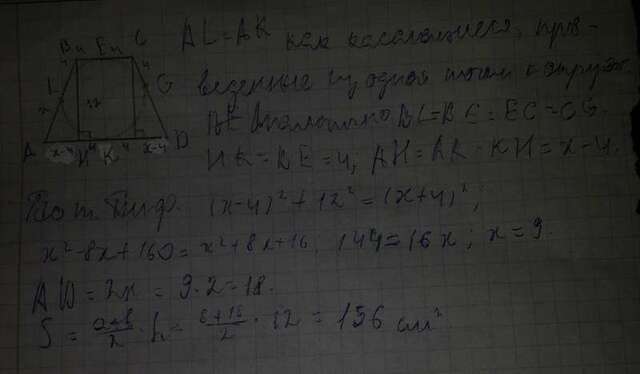 B 4 E 4 C
4 4
L G
x 12
A x-4 H 4 K 4 x-4 D
AL = AK как касательные, про-
веденные из одной точки к окруж.
Аналогично BL=BE=EC=CG.
HK=BE=4; AH=AK-KH=x-4.
По т. Пиф. (x-4)²+12²=(x+4)²;
x²-8x+160=x²+8x+16, 144=16x; x=9.
AD=2x=9·2=18.
S = a+b/2 · h = 8+18/2 · 12 = 156 см²